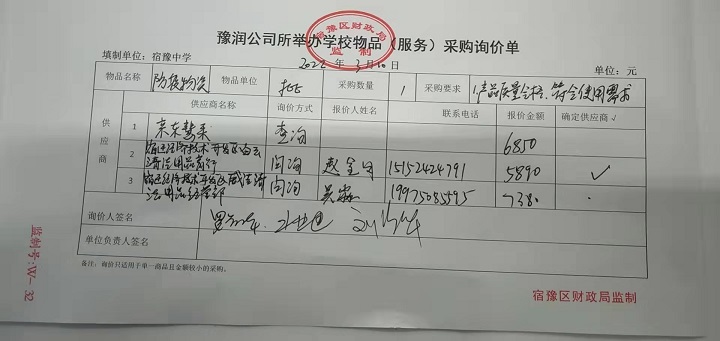 豫润公司所举办学校物品（服务）采购询价单
宿豫区财政局
监制
填制单位：宿豫中学
2022年3月10日
单位：元
物品名称 防疫物资 物品单位 批 采购数量 1 采购要求 1.产品质量合格、符合使用需求
供应商
供应商名称 询价方式 报价人姓名 联系电话 报价金额 确定供应商√
1 京东慧采 查询 6850
2 宿迁经济技术开发区白云清洁用品商行 问询 赵 15152424791 5890 √
3 宿迁经济技术开发区威洁清洁用品经营部 问询 吴 19975085595 7380
询价人签名
单位负责人签名
备注：询价只适用于单一商品且金额较小的采购。
宿豫区财政局监制
监制号：W－32